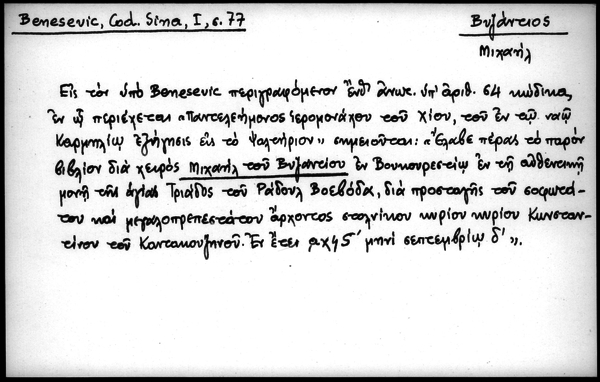 Benesevic, Cod. Sina, I, σ. 77
Βυζάντιος
Μιχαήλ
Εἰς τὸν ὑπὸ Benesevic περιγραφόμενον ἔνθ' ἄνωτ. ὑπ' ἀριθ. 64 κώδικα,
ἐν ᾧ περιέχεται «Παντελεήμονος ἱερομονάχου τοῦ Χίου, τοῦ ἐν τῷ ναῷ
Καρμηλίῳ ἐξήγησις εἰς τὸ ψαλτήριον» σημειοῦται: «Ἔλαβε πέρας τὸ παρὸν
βιβλίον διὰ χειρὸς Μιχαὴλ τοῦ Βυζαντίου ἐν Βουκουρεστίῳ ἐν τῇ αὐθεντικῇ
μονῇ τῆς ἁγίας Τριάδος τοῦ Ράδουλ Βοεβόδα, διὰ προσταγῆς τοῦ σοφωτά-
του καὶ μεγαλοπρεπεστάτου ἄρχοντος στολνίκου κυρίου κυρίου Κωνσταν-
τίνου τοῦ Καντακουζηνοῦ. Ἐν ἔτει αχ45' μηνὶ σεπτεμβρίῳ δ'».